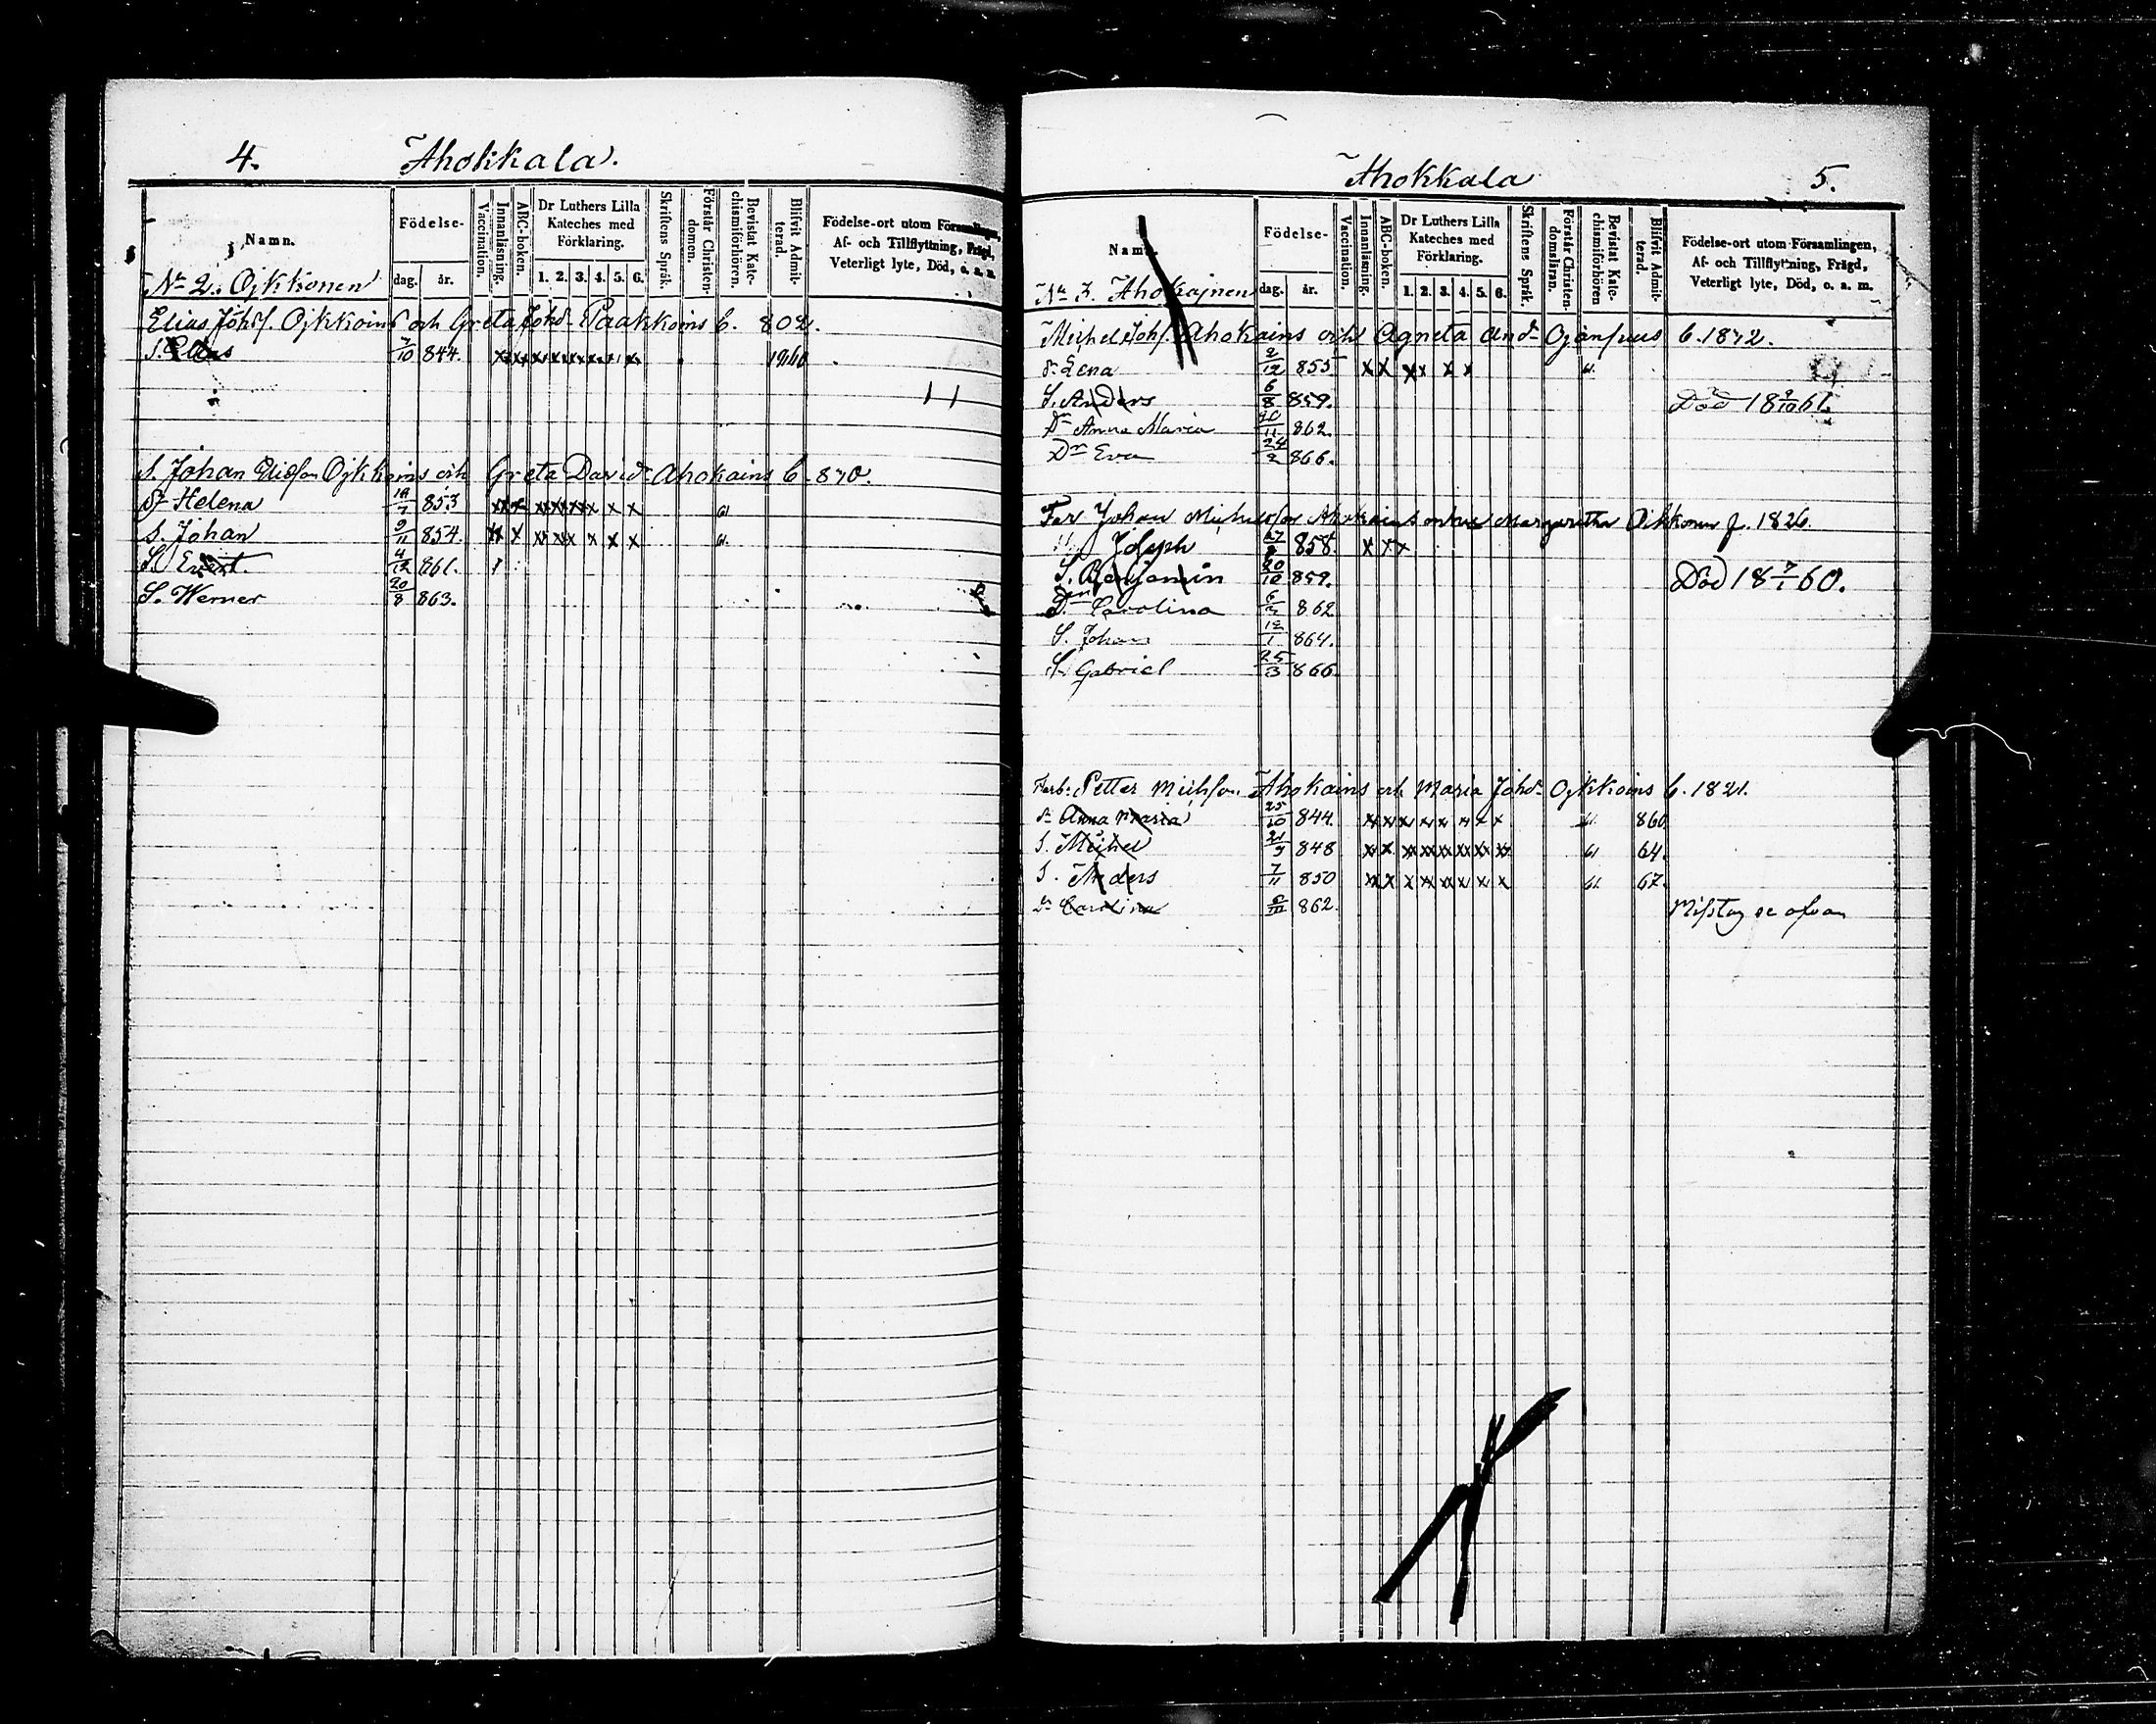 4. Ahokkala.
Namn.
Födelse-
dag. år.
Vaccination.
Innanläsning.
ABC-boken.
Dr Luthers Lilla Kateches med Förklaring.
1. 2. 3. 4. 5. 6.
Skriftens Språk.
Förstår Christen-domen.
Bevistat Kate-chismiförhören.
Blifvit Admit-terad.
Födelse-ort utom Församlingen, Af- och Tillflyttning, Frägd, Veterligt lyte, Död, o. a. m.
No 2. Ojkkonen
Elias Johsf. Ojkkoins och Greta Johd. Paakkoins C. 802.
S. Elias 7/10 844. 1860
S. Johan Eliasson Ojkkoins och Greta Davidr Ahokains C. 870.
dr Helena 853 61
S. Johan 9/11 854. 61.
S. 4/12 861.
S. Werner 20/8 863.
Ahokkala 5.
Namn.
Födelse-
dag. år.
Vaccination.
Innanläsning.
ABC-boken.
Dr Luthers Lilla Kateches med Förklaring.
1. 2. 3. 4. 5. 6.
Skriftens Språk.
Förstår Christen-domsläran.
Bevistat Kate-chismiförhören
Blifvit Admit-terad.
Födelse-ort utom Församlingen, Af- och Tillflyttning, Frägd, Veterligt lyte, Död, o. a. m.
No 3. Ahokajnen
Michel Johsf. Ahokains och Agneta And C. 1872.
dr Lena 2/12 855 61.
S. Anders 6/8 859. Död 18 9/10 61.
Dr Anna Maria 862.
Dr Eva 24/2 866.
Far Johan Ahokains Margaretha Oikkonen f. 1826.
Joseph 858.
S. Benjamin 20/10 859. Död 18 7/1 60.
Dr Carolina 862
S. Johan 12/1 864.
S. Gabriel 25/3 866
Farb. Petter Michsson Ahokains och Maria Johdr Ojkkoins C. 1821.
dr Anna Maria 25/10 844. 61. 860.
S. Michel 21/9 848 61 64.
S. Anders 7/11 850 61. 67.
Dr Carolina 862. Misstag se ofvan